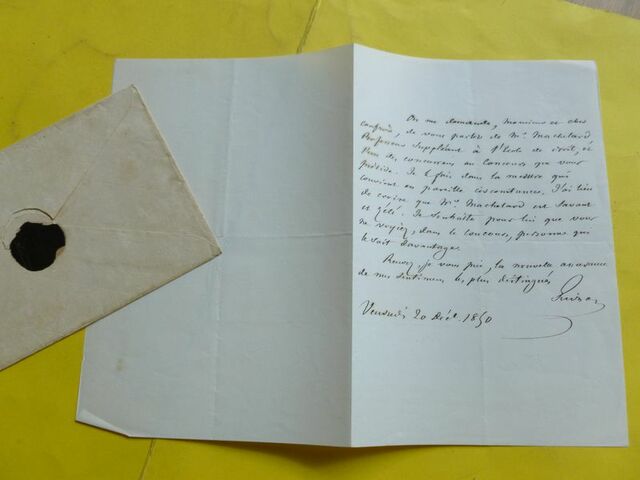 On me demande, Monsieur et cher
confrère, de vous parler de Mr. Machelard
Professeur suppléant à l'école de droit, et
l'un des concurrens au Concours que vous
présidez. Je le fais dans la mesure qui
convient en pareille circonstance. J'ai lieu
de croire que Mr. Machelard est savant
et zélé. Je souhaite pour lui que vous
ne voyiez, dans le concours, personne qui
le soit davantage.
Recevez, je vous prie, la nouvelle assurance
de mes sentimens les plus distingués
Guizot
Vendredi 20 Déc. 1850